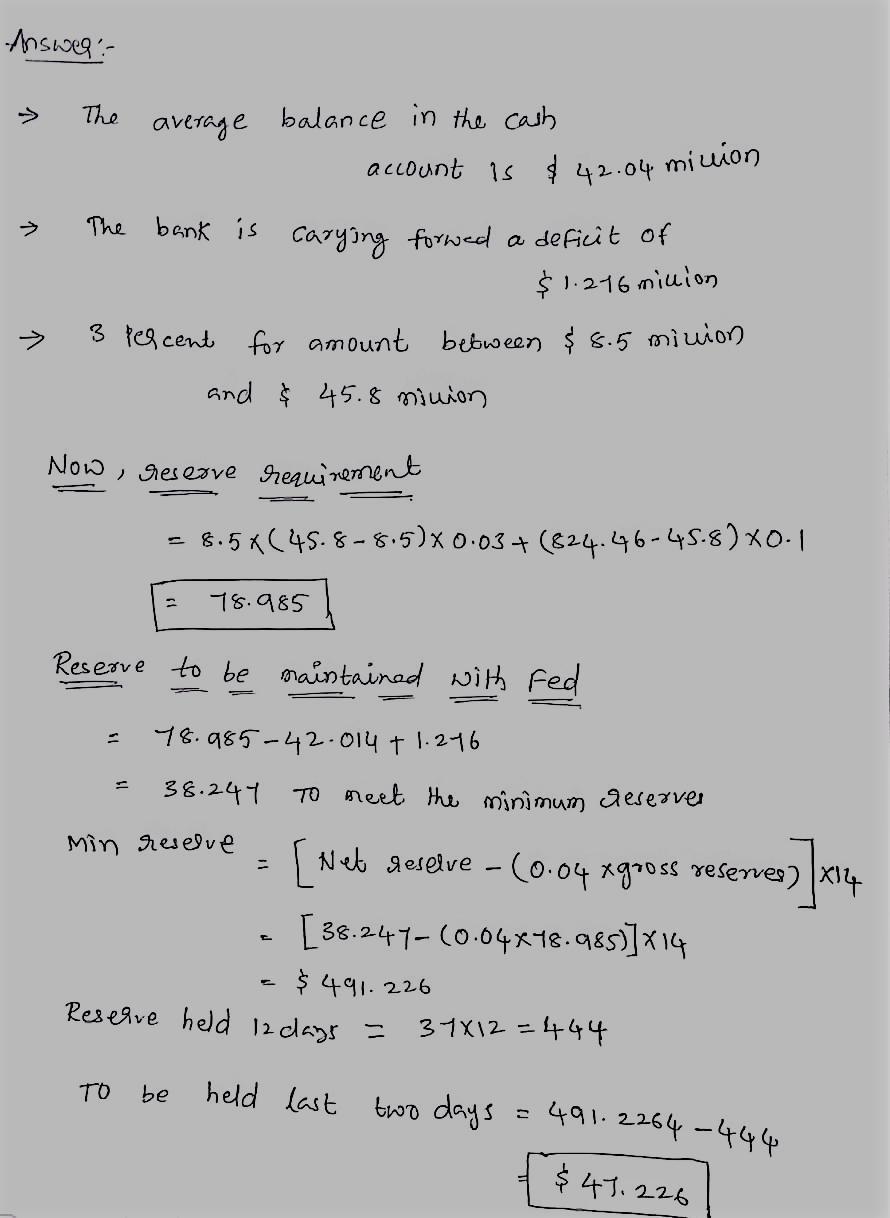 Answer:-
→ The average balance in the cash
account is $ 42.04 million
→ The bank is carying forwed a deficit of
$ 1.276 million
→ 3 percent for amount between $ 8.5 million
and $ 45.8 million
Now, reserve requirement
= 8.5 x (45.8 - 8.5) x 0.03 + (824.46 - 45.8) x 0.1
= 78.985
Reserve to be maintained with Fed
= 78.985 - 42.014 + 1.276
= 38.247 To meet the minimum reserves
Min reserve = [Net reserve - (0.04 x gross reserves)] x 14
= [38.247 - (0.04 x 78.985)] x 14
= $ 491.226
Reserve held 12 days = 37 x 12 = 444
To be held last two days = 491.2264 - 444
= $ 47.226